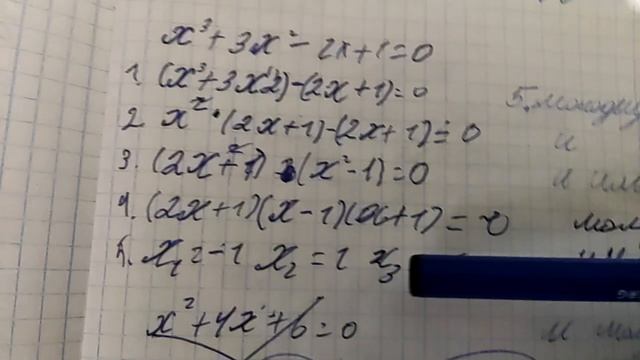 x³+3x²-2x+1=0
1. (x³+3x2)-(2x+1)=0
2 x²·(2x+1)-(2x+1)=0
3. (2x+1)(x²-1)=0
4. (2x+1)(x-1)(x+1)=0
5. x₁=-1 x₂=1 x₃
x²+4x+6=0
5.
и
и
и